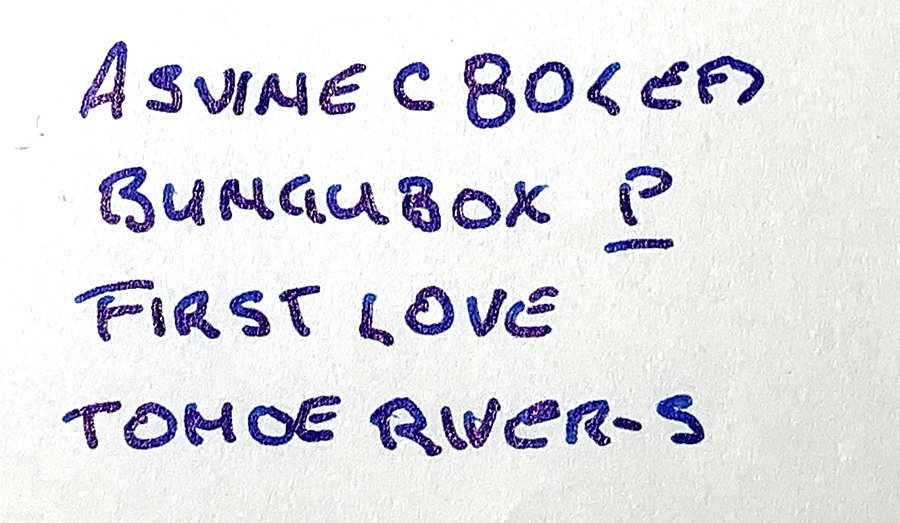 ASVINE C
BUNGUBOX P
FIRST LOVE
TOMOE RIVER-S